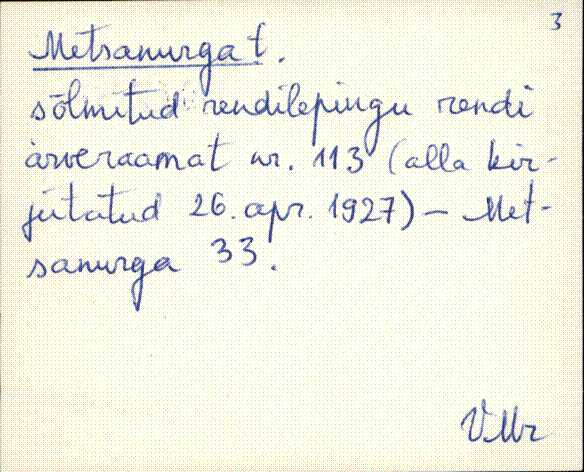 3
Metsanurga t.
sõlmitud rendilepingu rendi
arveraamat nr. 113 (alla kir-
jutatud 26. apr. 1927) – Met-
sanurga 33.
VMr